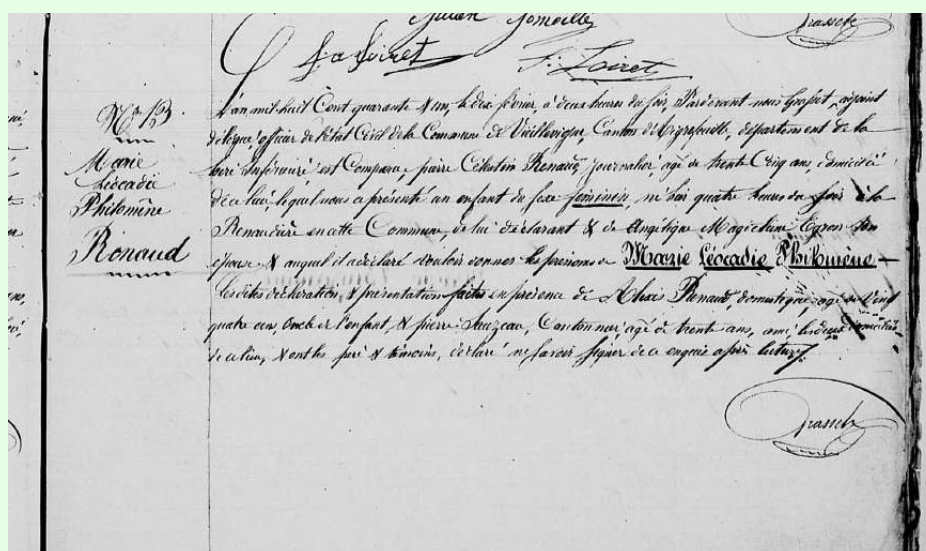 Julien Gomeille
Grasset
F: a Loiret F: Loiret
N° 13.
Marie
Léocadie
Philomène
Renaud
L'an mil huit Cent quarante & un, le dix février, à deux heures du soir, Pardevant nous Grasset, adjoint
délégué officier de l'état Civil de la Commune de Vieillevigne, Canton d'Aigrefeuille, département de la
loire inférieure, est Comparu pierre Célestin Renaud, journalier, agé de trente Cinq ans, domicilié
de ce lieu, lequel nous a présenté un enfant du sexe féminin, né hier quatre heures du soir à la
Renaudière en cette Commune, de lui déclarant & de Angélique Magdelaine Egron son
épouse & auquel il a déclaré vouloir donner les prénoms de Marie Léocadie Philomène —
Lesdites déclaration & présentation faites en présence de Alexis Renaud domestique, agé de Vingt
quatre ans, oncle de l'enfant, & pierre Sauzeau, Cantonnier, agé de trente ans, ami, les deux domiciliés
de ce lieu, & ont les père & témoins, déclaré ne savoir signer de ce enquis après lecture.
Grasset